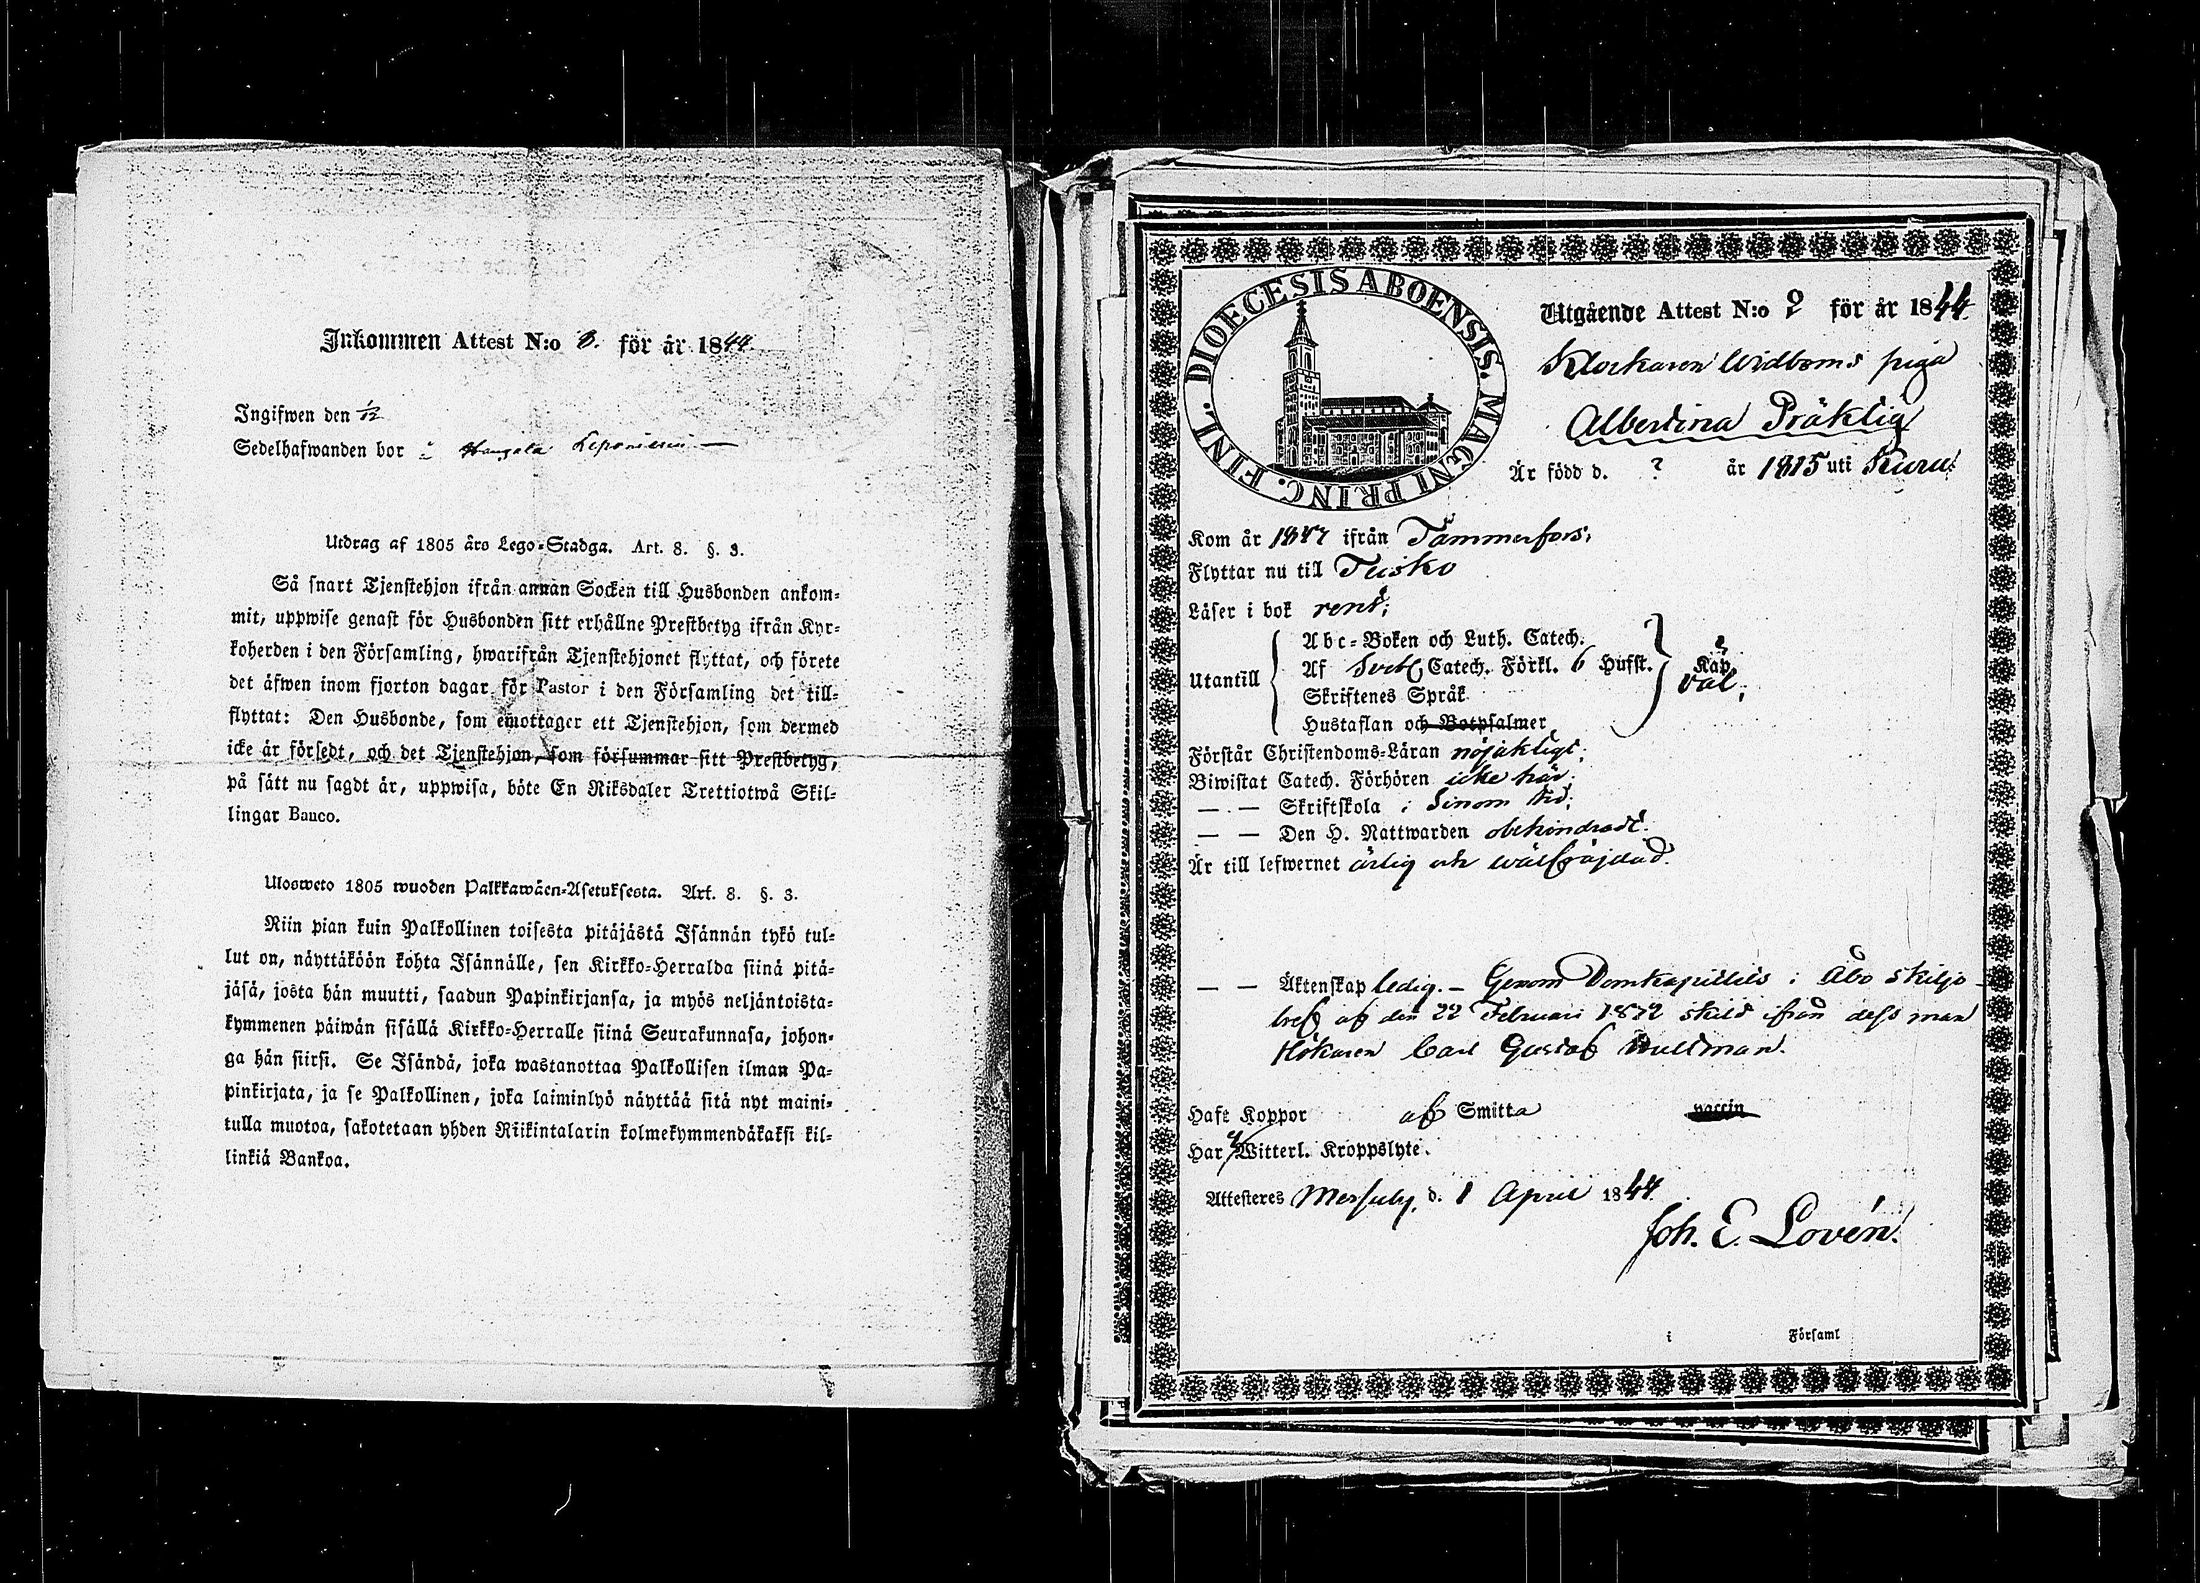 Inkommen Attest N:o 8. för år 1844.
Ingifwen den 1/12
Sedelhafwanden bor i Hangala
Utdrag af 1805 års Lego-Stadga. Art. 8. §. 3.
Så snart Tjenstehjon ifrån annan Socken till Husbonden ankom-
mit, uppwise genast för Husbonden sitt erhållne Prestbetyg ifrån Kyr-
koherden i den Församling, hwarifrån Tjenstehjonet flyttat, och förete
det äfwen inom fjorton dagar för Pastor i den Församling det till-
flyttat: Den Husbonde, som emottager ett Tjenstehjon, som dermed
icke är försedt, och det Tjenstehjon, som försummar sitt Prestbetyg,
på sätt nu sagdt är, uppwisa, böte En Riksdaler Trettiotwå Skil-
lingar Banco.
Ulosweto 1805 wuoden Palkkawäen-Asetuksesta. Art. 8. §. 3.
Niin pian kuin Palkollinen toisesta pitäjästä Isännän tykö tul-
lut on, näyttäköön kohta Isännälle, sen Kirkko-Herralda siinä pitä-
jäsä, josta hän muutti, saadun Papinkirjansa, ja myös neljäntoista-
kymmenen päiwän sisällä Kirkko-Herralle siinä Seurakunnasa, johon-
ga hän siirsi. Se Isändä, joka wastanottaa Palkollisen ilman Pa-
pinkirjata, ja se Palkollinen, joka laiminlyö näyttää sitä nyt maini-
tulla muotoa, sakotetaan yhden Riikintalarin kolmekymmendäkaksi kil-
linkiä Bankoa.
DIOECESIS ABOENSIS. MAGNI PRINC. FINL.
Utgående Attest N:o 2 för år 1844.
Klockaren Widboms piga
Albertina Präktig
Är född d. ? år 1815 uti Kuru.
Kom år 1847 ifrån Tammerfors;
Flyttar nu till Teisko
Läser i bok rent;
Utantill
Abc-Boken och Luth. Catech.
Af Sveb. Catech. Förkl. 6 Hufst.
Skriftenes Språk
Hustaflan och Botpsalmer
Kap
väl;
Förstår Christendoms-Läran nöjaktigt;
Biwistat Catech. Förhören icke här;
— — Skriftskola i sinom tid;
— — Den H. Nattwarden obehindradt.
Är till lefwernet ärlig och wälfräjdad.
— — Äktenskap ledig. – Genom Domkapitlets i Åbo skiljo-
bref af den 22 Februari 1842 skild ifrån dess man
Hökaren Carl Gustaf Hultman.
Haft Koppor af Smitta vaccin
Har Witterl. Kroppslyte.
Attesteres Messuby, d. 1 April 1844.
Joh. E. Lovén.
i Församl